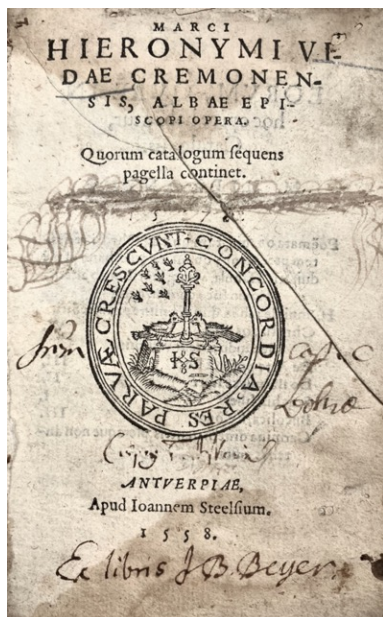 MARCI
HIERONYMI VI-
DAE CREMONEN-
SIS, ALBAE EPI-
SCOPI OPERA.
Quorum catalogum sequens
pagella continet.
CONCORDIA RES PARVÆ CRESCVNT
HS
ANTVERPIAE,
Apud Ioannem Steelsium.
1558.
Ex libris J B Beyer